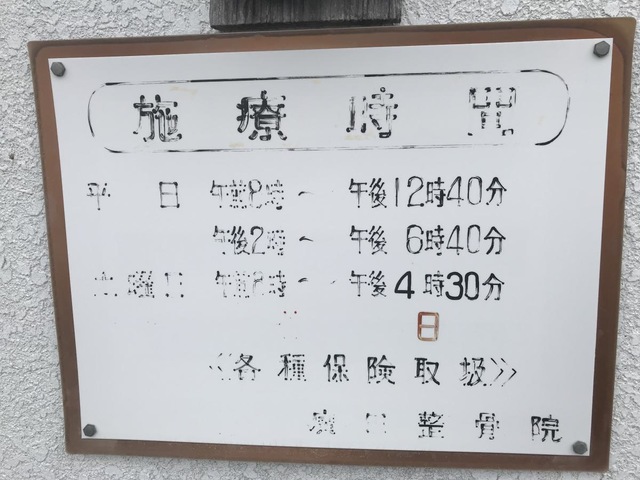 施療時間
平日 午前8時～午後12時40分
午後2時～午後6時40分
土曜日 午前8時～午後4時30分
日
《各種保険取扱》
整骨院